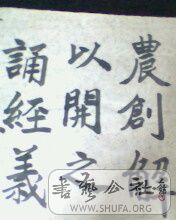 農創解
以開之
誦經義
書藝公社
WWW.SHUFA.ORG